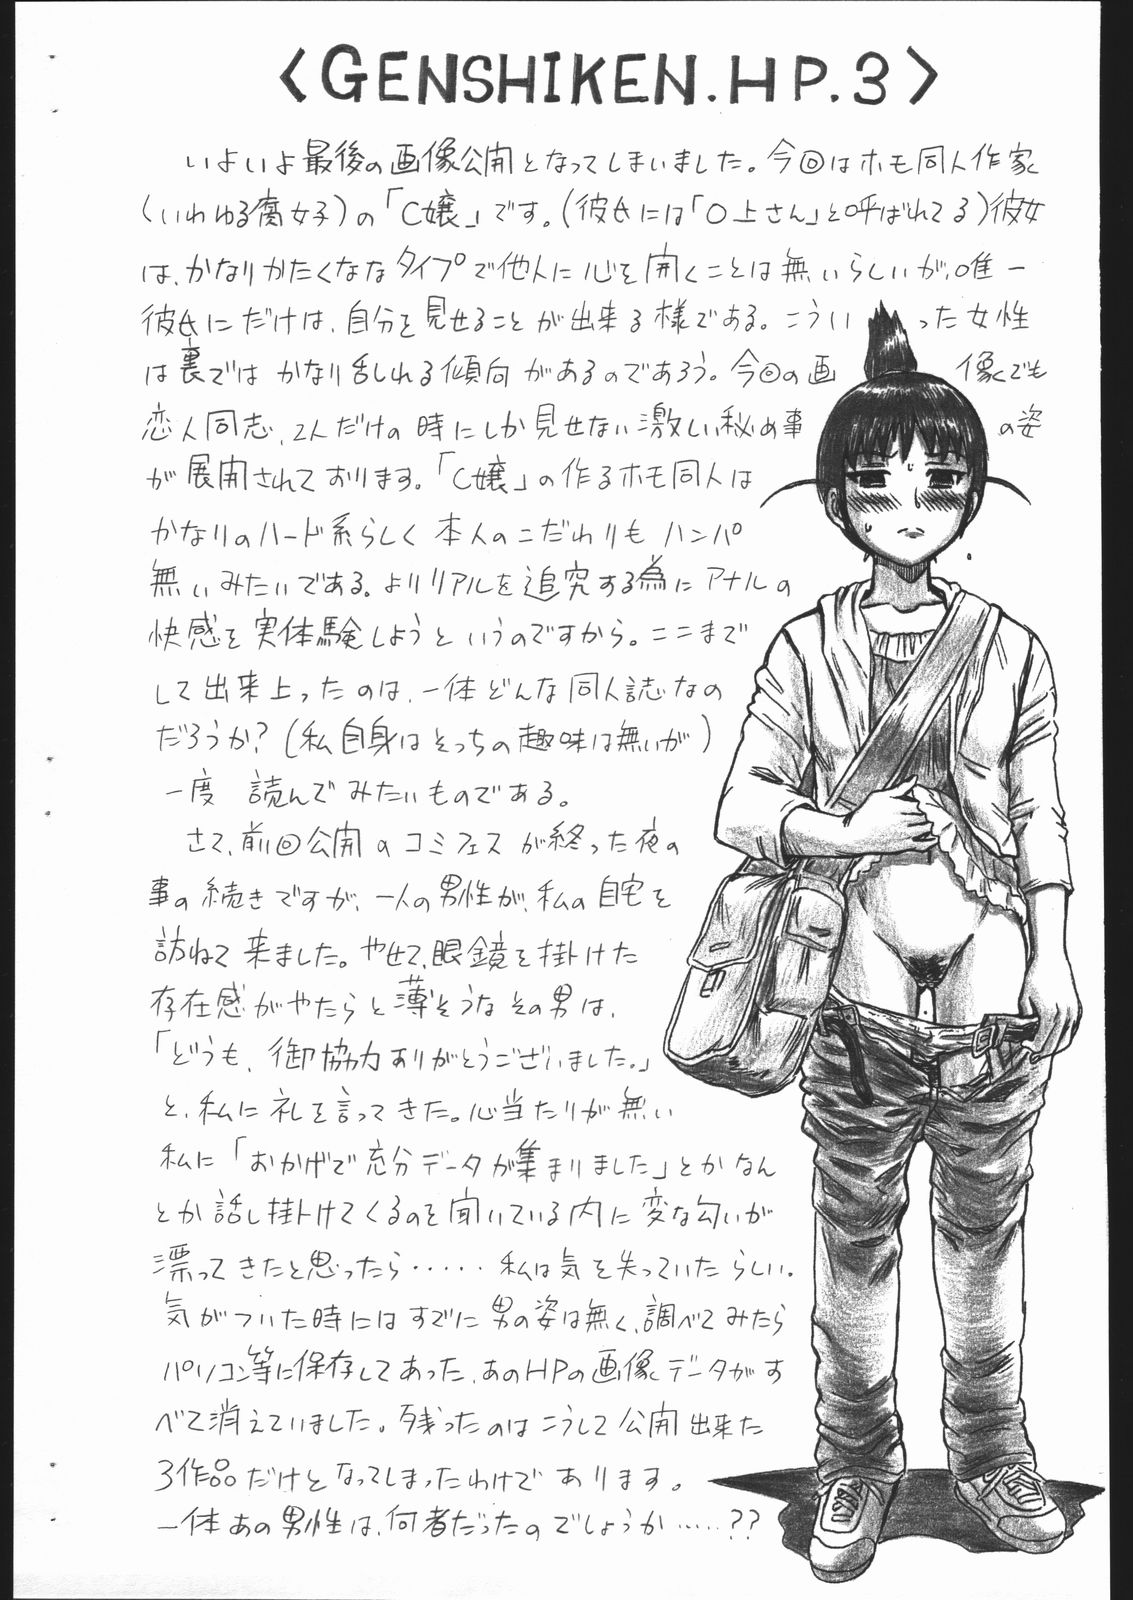 <GENSHIKEN.HP.3>
いよいよ最後の画像公開となってしまいました。今回はホモ同人作家
(いわゆる腐女子)の「C嬢」です。(彼氏には「O上さん」と呼ばれてる)彼女
は、かなりかたくななタイプで他人に心を開くことは無いらしいが、唯一
彼氏にだけは、自分を見せることが出来る様である。こういった女性
は裏ではかなり乱れる傾向があるのであろう。今回の画像でも
恋人同志、2人だけの時にしか見せない激しい秘め事の姿
が展開されております。「C嬢」の作るホモ同人は
かなりのハード系らしく本人のこだわりもハンパ
無いみたいである。よりリアルを追究する為にアナルの
快感を実体験しようというのですから。ここまで
して出来上ったのは、一体どんな同人誌なの
だろうか?(私自身はそっちの趣味は無いが)
一度 読んでみたいものである。
さて、前回公開のコミフェスが終った夜の
事の続きですが、一人の男性が、私の自宅を
訪ねて来ました。やせて、眼鏡を掛けた
存在感がやたらと薄そうなその男は、
「どうも、御協力ありがとうございました。」
と、私に礼を言ってきた。心当たりが無い
私に「おかげで充分データが集まりました」とかなん
とか話し掛けてくるのを聞いている内に変な匂いが
漂ってきたと思ったら・・・・・私は気を失っていたらしい。
気がついた時にはすでに男の姿は無く、調べてみたら
パソコン等に保存してあった、あのHPの画像データがす
べて消えていました。残ったのはこうして公開出来た
3作品だけとなってしまったわけであります。
一体あの男性は、何者だったのでしょうか・・・・・??